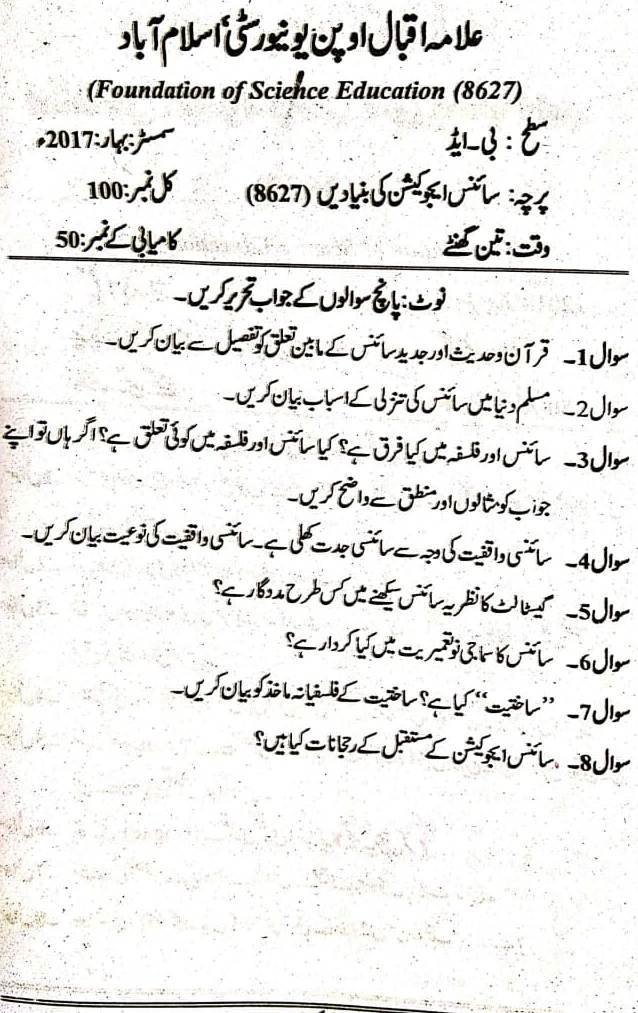 علامہ اقبال اوپن یونیورسٹی، اسلام آباد
(Foundation of Science Education (8627)
سطح: بی۔ایڈ سمسٹر: بہار: 2017ء
پرچہ: سائنس ایجوکیشن کی بنیادیں (8627) کل نمبر: 100
وقت: تین گھنٹے کامیابی کے نمبر: 50
نوٹ: پانچ سوالوں کے جواب تحریر کریں۔
سوال 1۔ قرآن و حدیث اور جدید سائنس کے مابین تعلق کو تفصیل سے بیان کریں۔
سوال 2۔ مسلم دنیا میں سائنس کی تنزلی کے اسباب بیان کریں۔
سوال 3۔ سائنس اور فلسفہ میں کیا فرق ہے؟ کیا سائنس اور فلسفہ میں کوئی تعلق ہے؟ اگر ہاں تو اپنے
جواب کو مثالوں اور منطق سے واضح کریں۔
سوال 4۔ سائنسی واقفیت کی وجہ سے سائنسی جدت کھلی ہے۔ سائنسی واقفیت کی نوعیت بیان کریں۔
سوال 5۔ گیسٹالٹ کا نظریہ سائنس سیکھنے میں کس طرح مددگار ہے؟
سوال 6۔ سائنس کا سماجی نو تعمیریت میں کیا کردار ہے؟
سوال 7۔ ”ساختیت“ کیا ہے؟ ساختیت کے فلسفیانہ ماخذ کو بیان کریں۔
سوال 8۔ سائنس ایجوکیشن کے مستقبل کے رجحانات کیا ہیں؟